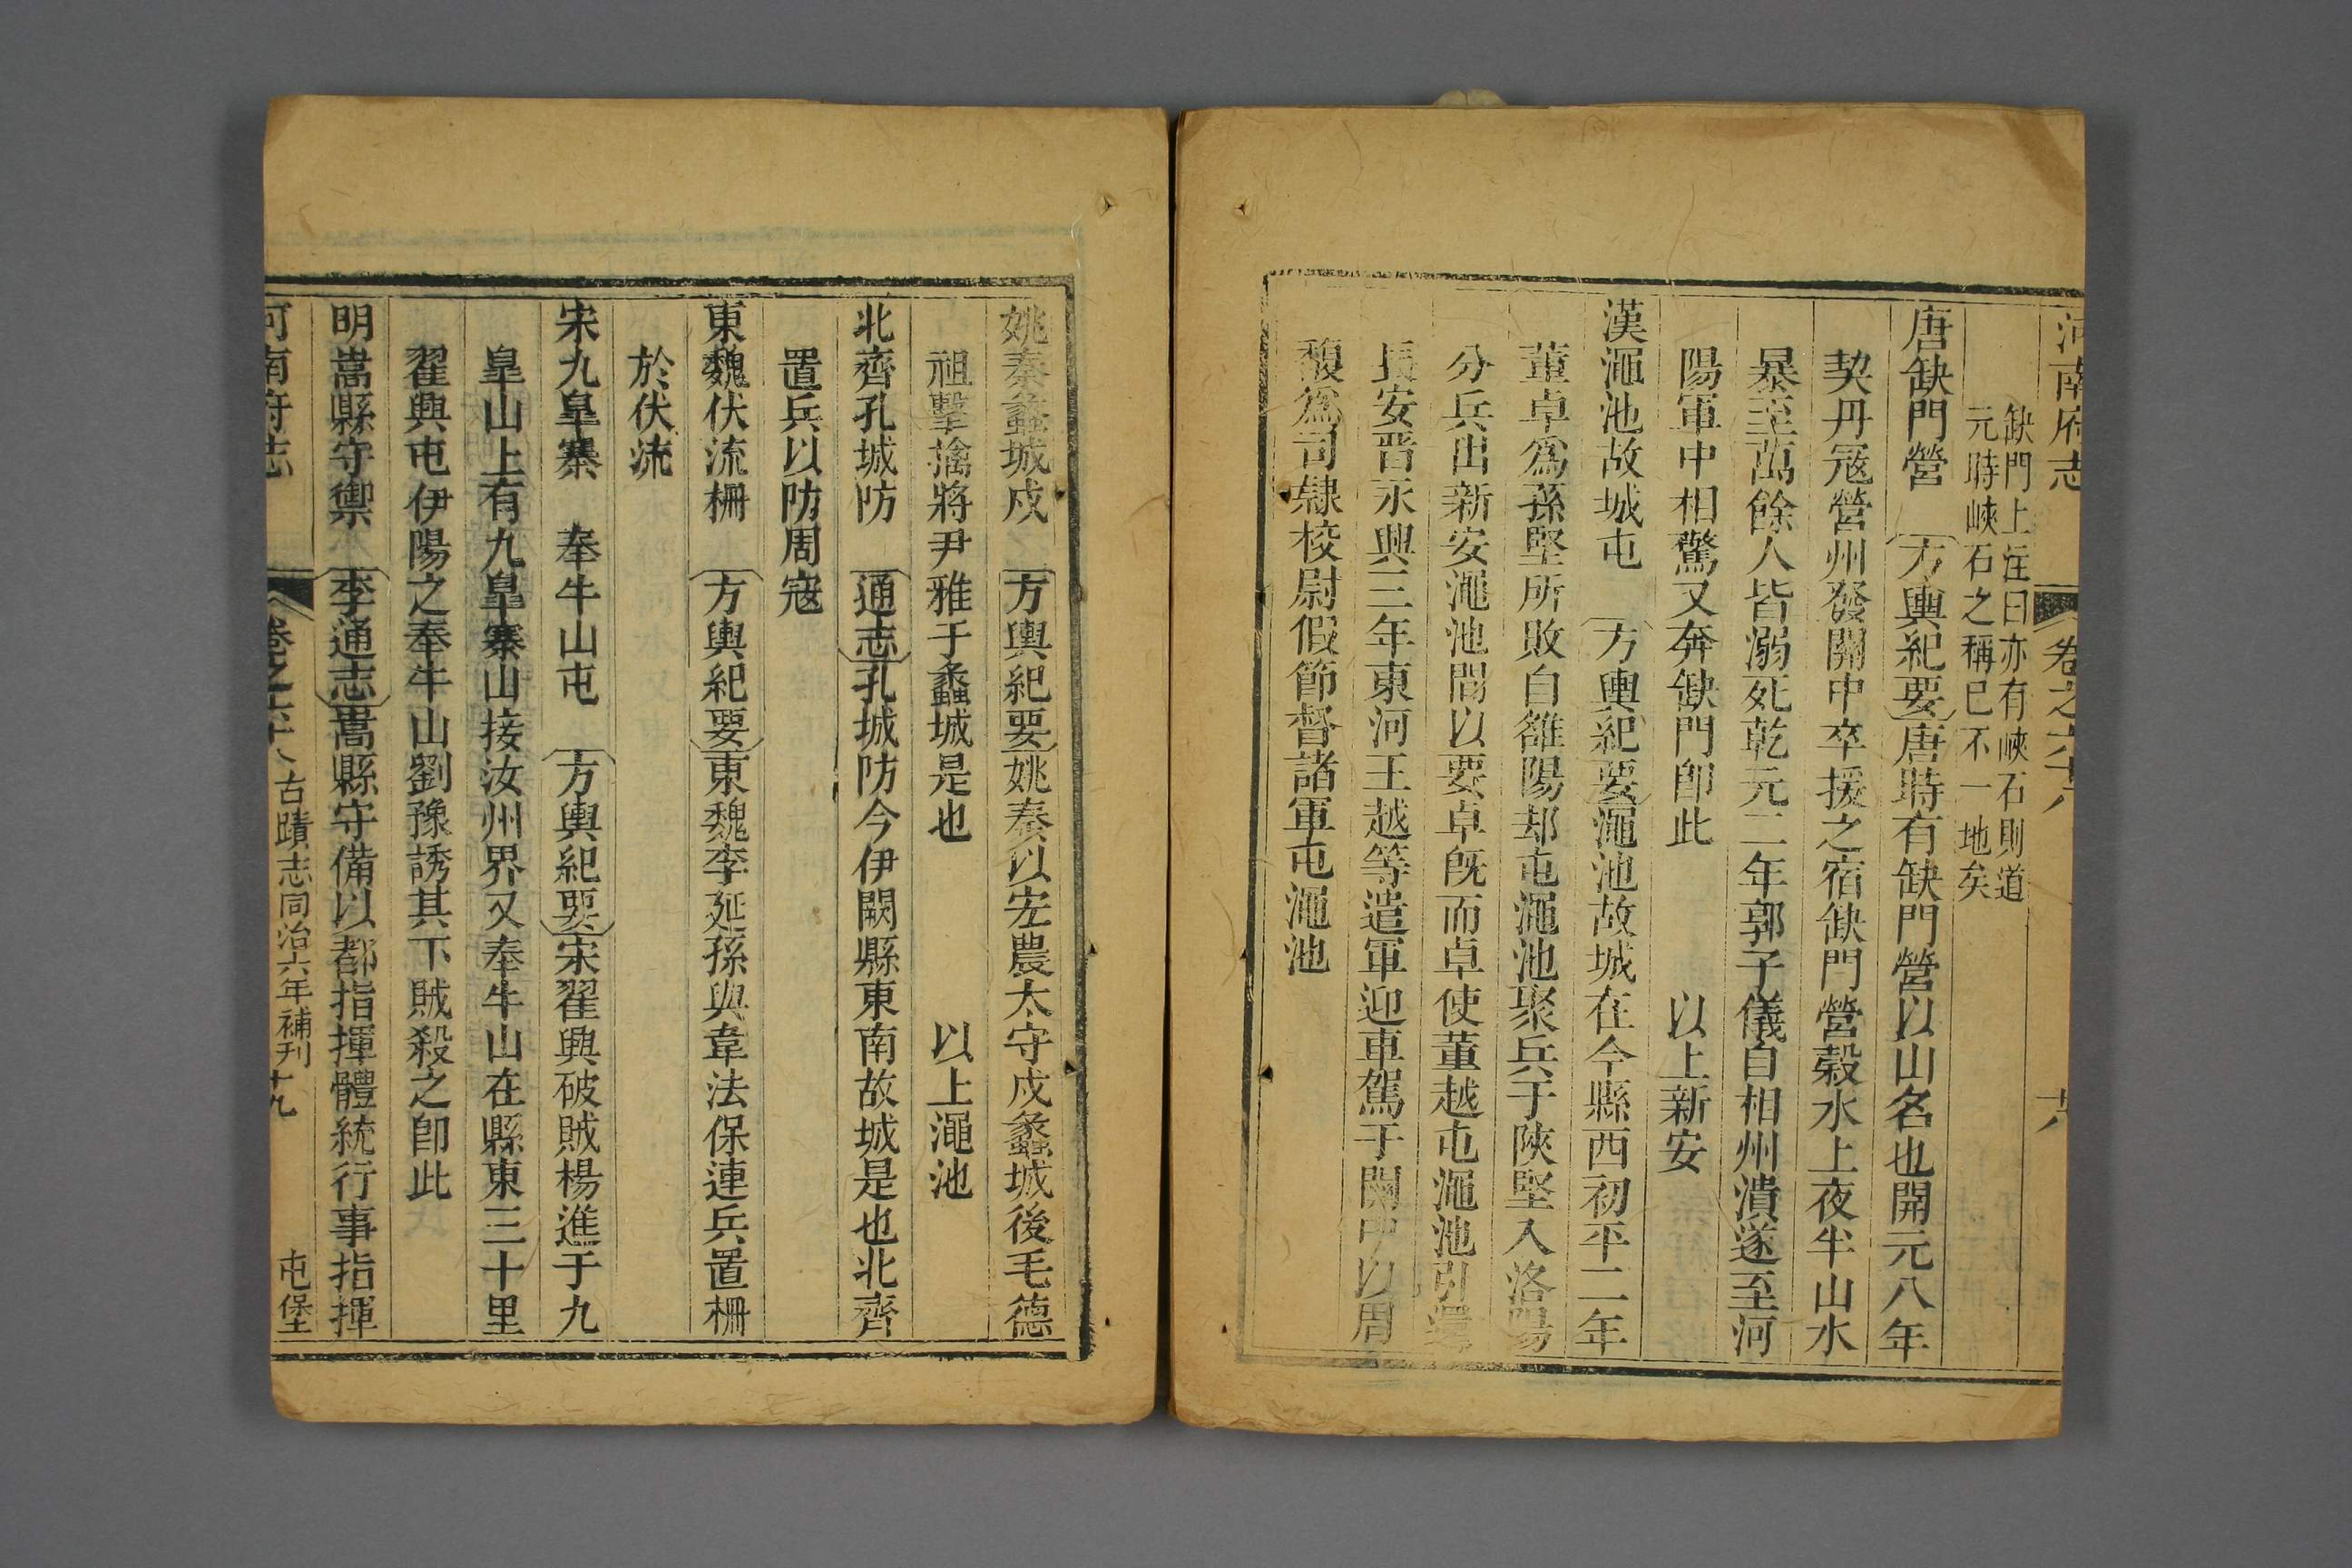 河南府志 卷之六十八 十八
缺門上注曰亦有峽石則道
元時峽石之稱已不一地矣
唐缺門營 方輿紀要唐時有缺門營以山名也開元八年
契丹寇營州發關中卒援之宿缺門營榖水上夜半山水
暴至萬餘人皆溺死乾元二年郭子儀自相州潰遂至河
陽軍中相驚又奔缺門卽此 以上新安
漢澠池故城屯 方輿紀要澠池故城在今縣西初平二年
董卓爲孫堅所敗自雒陽却屯澠池聚兵于陝堅入洛陽
分兵出新安澠池間以要卓旣而卓使董越屯澠池引還
長安晋永興三年東河王越等遣軍迎車駕于關中以周
馥爲司隸校尉假節督諸軍屯澠池
姚秦蠡城戍 方輿紀要姚秦以宏農太守戍蠡城後毛德
祖擊擒將尹雅于蠡城是也 以上澠池
北齊孔城防 通志孔城防今伊闕縣東南故城是也北齊
置兵以防周寇
東魏伏流柵 方輿紀要東魏李延孫與韋法保連兵置柵
於伏流
宋九皐寨 奉牛山屯 方輿紀要宋翟興破賊楊進于九
皐山上有九皐寨山接汝州界又奉牛山在縣東三十里
翟興屯伊陽之奉牛山劉豫誘其下賊殺之卽此
明嵩縣守禦 李通志嵩縣守備以都指揮體統行事指揮
河南府志 卷之六十八 古蹟志同治六年補刊 十九 屯堡